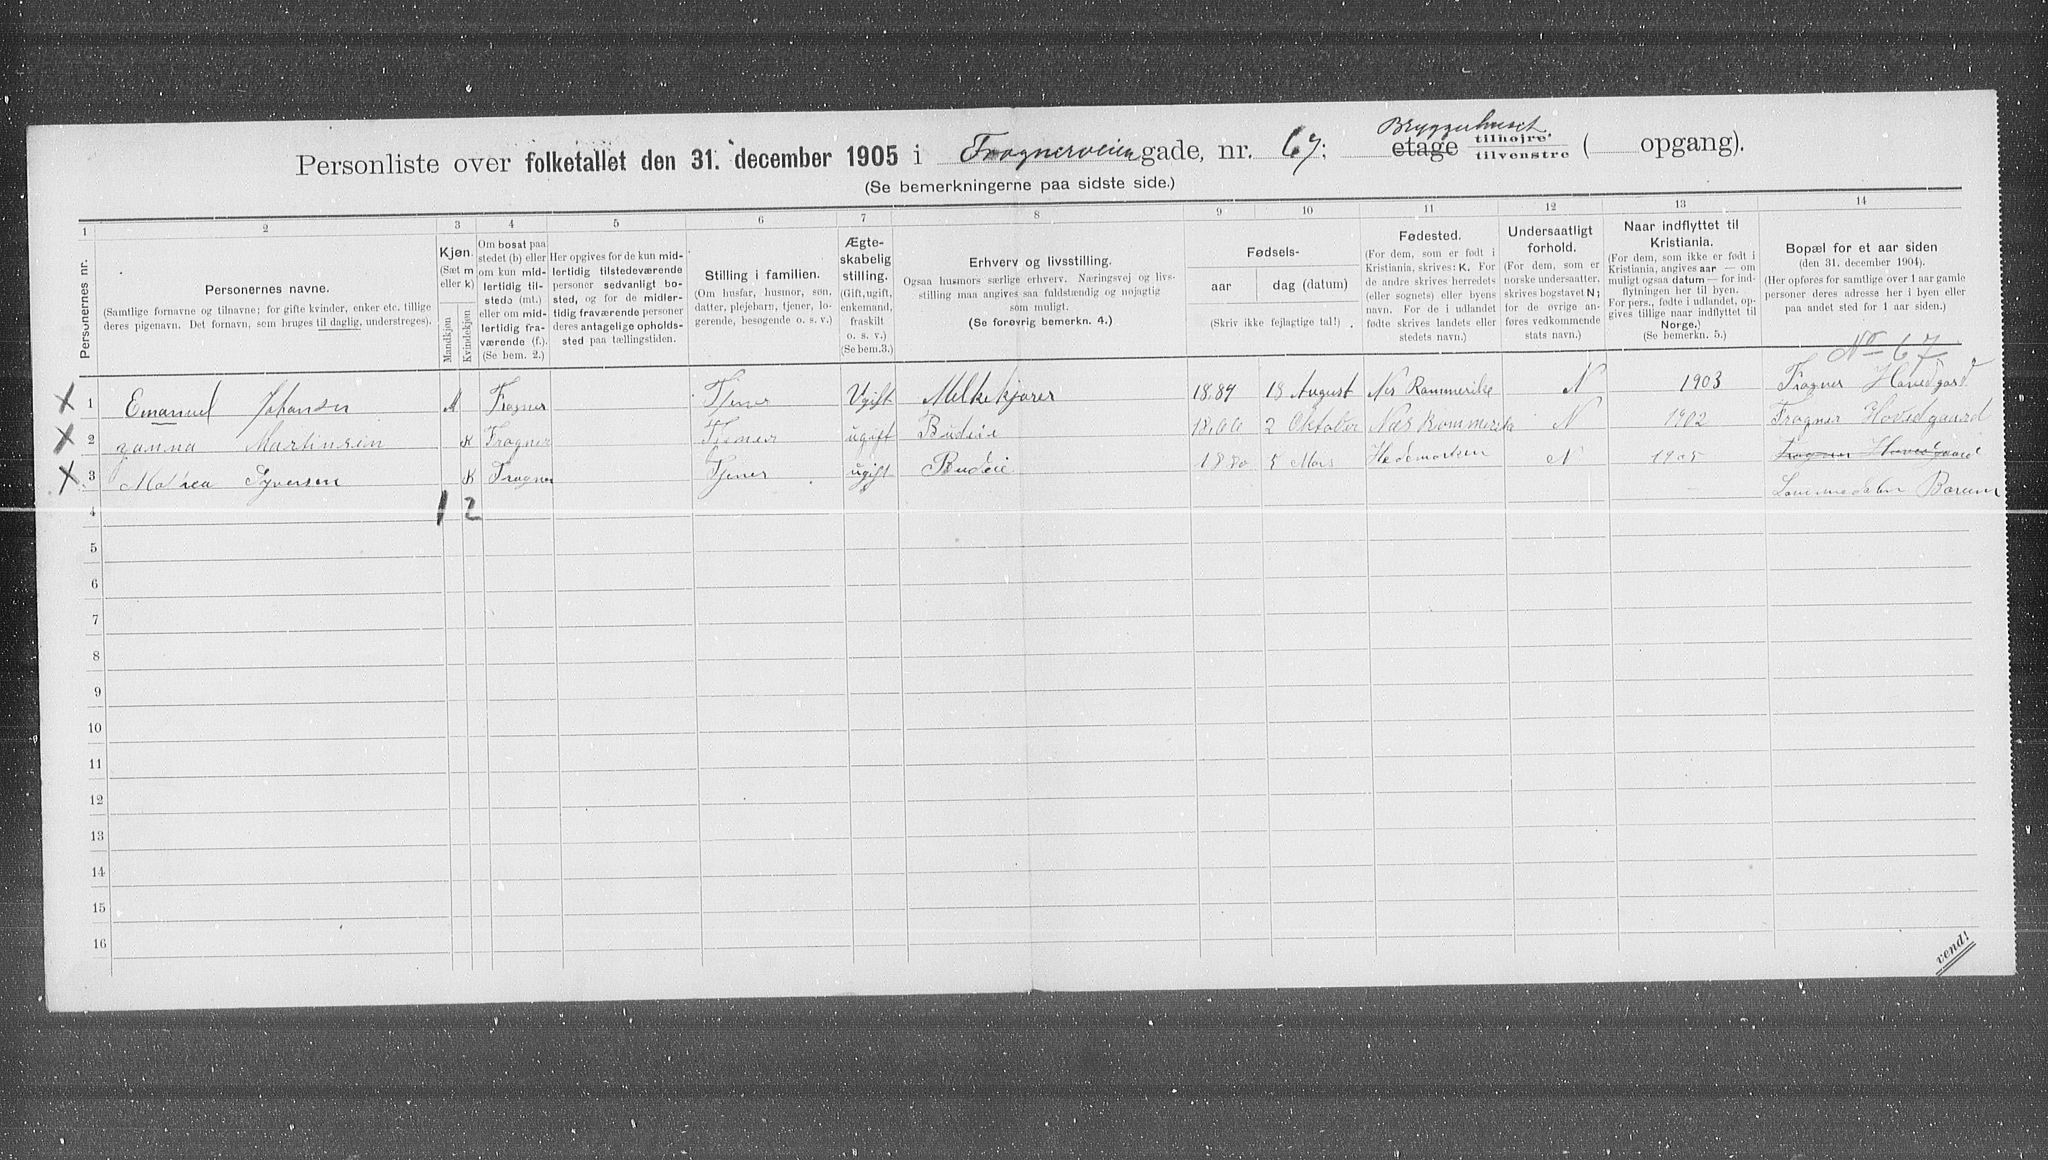 Personliste over folketallet den 31. december 1905 i Frognerveien gade, nr. 67; Bryggerhuset. etage tilhøjre tilvenstre ( opgang).
(Se bemerkningerne paa sidste side.)
1 2 3 4 5 6 7 8 9 10 11 12 13 14
Personernes nr.
Personernes navne.
(Samtlige fornavne og tilnavne; for gifte kvinder, enker etc. tillige
deres pigenavn. Det fornavn, som bruges til daglig, understreges).
Kjøn.
(Sæt m
eller k)
Mandkjøn
Kvindekjøn
Om bosat paa
stedet (b) eller
om kun mid-
lertidig til-
stede (mt.)
eller om mid-
lertidig fra-
værende (f.).
(Se bem. 2.)
Her opgives for de kun mid-
lertidig tilstedeværende
personer sedvanligt bo-
sted, og for de midler-
tidig fraværende personer
deres antagelige opholds-
sted paa tællingstiden.
Stilling i familien.
(Om husfar, husmor, søn,
datter, plejebarn, tjener, lo-
gerende, besøgende o. s. v.)
Ægte-
skabelig
stilling.
(Gift, ugift,
enkemand,
fraskilt
o. s. v.)
(Se bem.3.)
Erhverv og livsstilling.
Ogsaa husmors særlige erhverv. Næringsvej og livs-
stilling maa angives saa fuldstændig og nøjagtig
som muligt.
(Se forøvrig bemerkn. 4.)
Fødsels-
aar dag (datum)
(Skriv ikke fejlagtige tal!)
Fødested.
(For dem, som er født i
Kristiania, skrives: K. For
de andre skrives herredets
(eller sognets) eller byens
navn. For de i udlandet
fødte skrives landets eller
stedets navn.)
Undersaatligt
forhold.
(For dem, som er
norske undersaatter,
skrives bogstavet N;
for de øvrige an-
føres vedkommende
stats navn.)
Naar indflyttet til
Kristiania.
(For dem, som ikke er født i
Kristiania, angives aar — om
muligt ogsaa datum — for ind-
flytningen her til byen.
For pers., fødte i udlandet, op-
gives tillige naar indflyttet til
Norge.)
(Se bemerkn. 5.)
Bopæl for et aar siden
(den 31. december 1904).
(Her opføres for samtlige over 1 aar gamle
personer deres adresse her i byen eller
paa andet sted for 1 aar siden.)
No 67
X 1 Emanuel Johansen M Frogner Tjener Ugift Melkekjører 1889 18 August Nes Rommerike N 1903 Frogner Hovedgard
X 2 Janna Martinsen K Frogner Tjener ugift Budeie 2 Oktober Næs Rommerike N 1902 Frogner Hovedgaard
X 3 Mathea Syversen K Frogner Tjener ugift Budeie 1880 5 Mars Hedemarken N 1905 Frogner Hovedgaard
4 1 2 Lommedalen Bærum
5
6
7
8
9
10
11
12
13
14
15
16
vend!